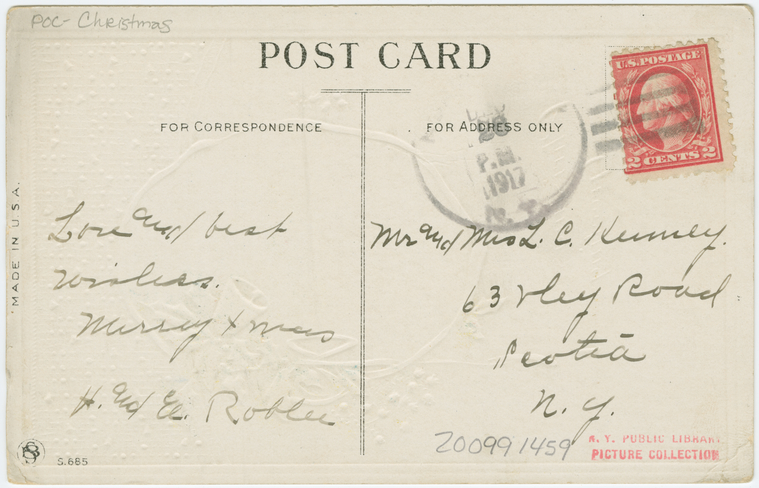 POC- Christmas
POST CARD
FOR CORRESPONDENCE
FOR ADDRESS ONLY
U.S. POSTAGE
2 CENTS 2
28
P.M.
1917
N. Y.
MADE IN U.S.A.
Love and best
wishess.
Merrey Xmas
H. and E. Roblee
Mr and Mrs L. C. Kenney.
63 Vley Road
Scotia
N. Y.
200991459
N. Y. PUBLIC LIBRARY
PICTURE COLLECTION
S.685